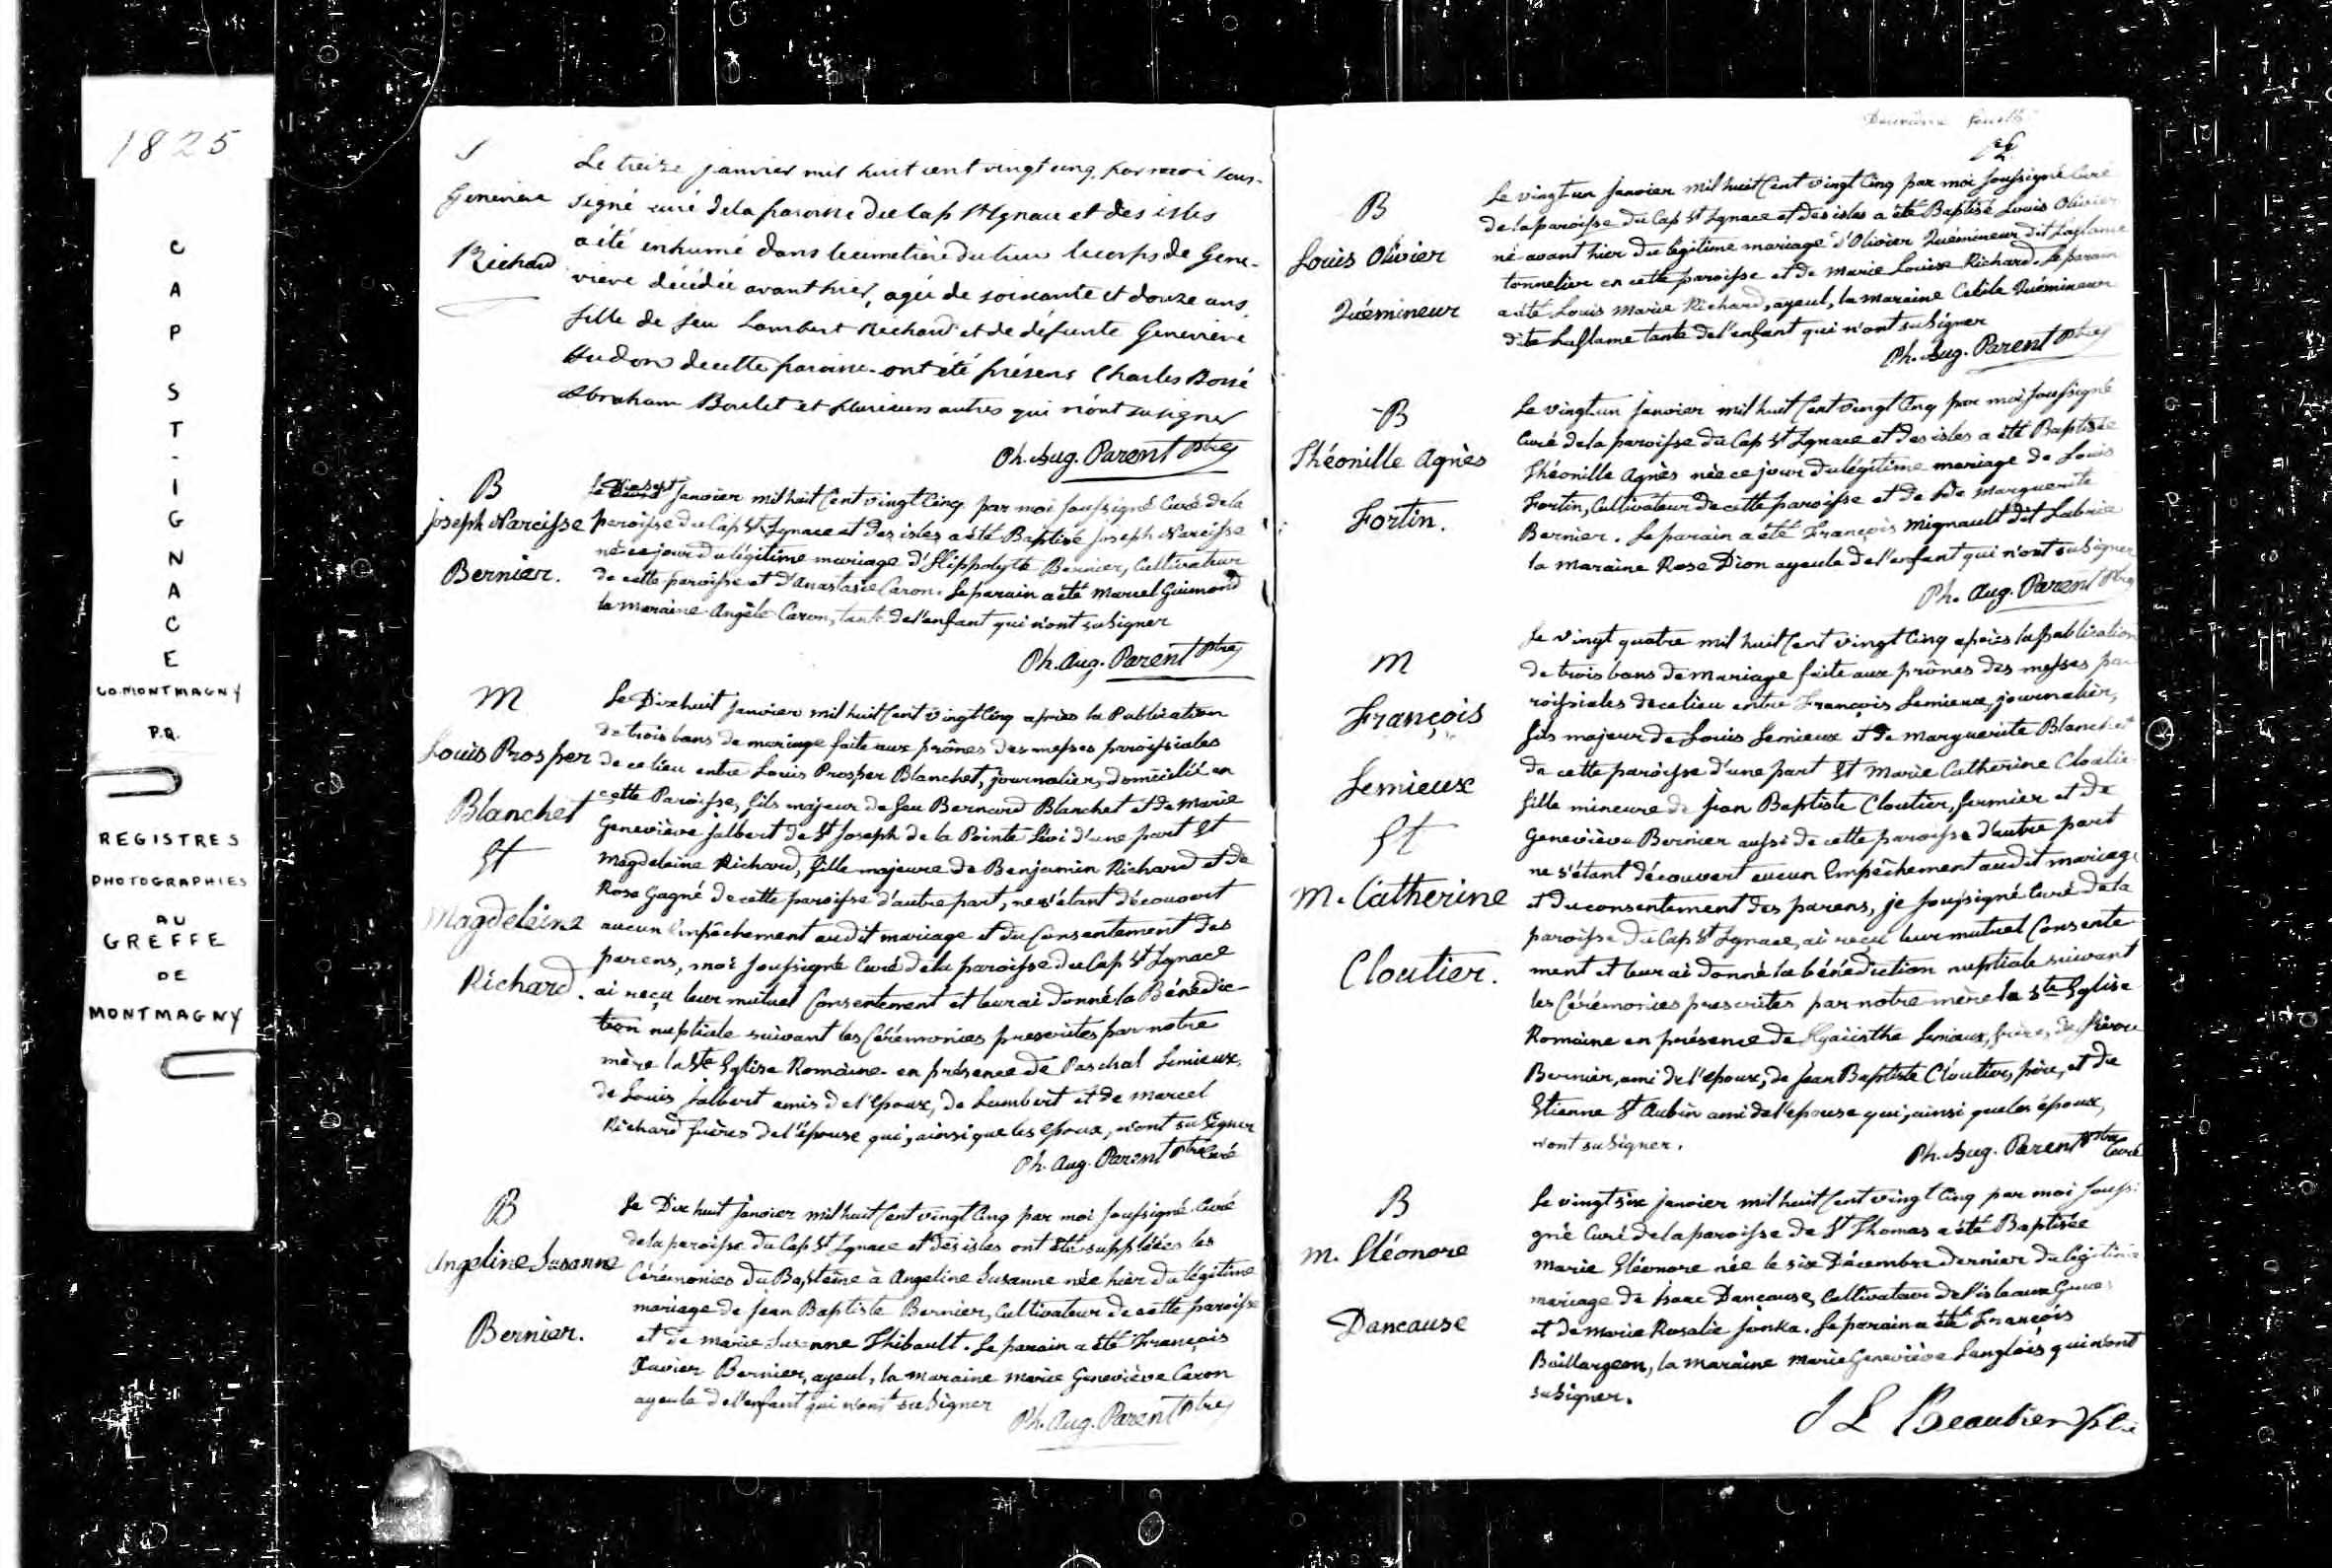 1825
CAP ST-IGNACE
CO. MONTMAGNY
P.Q.
REGISTRES
PHOTOGRAPHIES
AU
GREFFE
DE
MONTMAGNY
S
Genevieve
Richard
Le treize janvier mil huit cent vingt cinq, par moi sous-
signé curé de la paroisse du Cap St Ignace et des isles
a été inhumé dans le cimetière du lieu le corps de Gene-
vieve décédée avant hier, agée de soixante et douze ans
fille de feu Lambert Richard et de défunte Genevieve
Hudon de cette paroisse. ont été présens Charles Bossé
Abraham Boulet et plusieurs autres qui n'ont su signer
Ph. Aug. Parent Ptre
B
Joseph Narcisse
Bernier.
Le Janvier mil huit Cent vingt Cinq par moi Soussigné Curé de la
paroisse du Cap St Ignace et des isles a été Baptisé Joseph Narcisse
né ce jour du légitime mariage d'Hippolyte Bernier, Cultivateur
de cette paroisse et d'Anastasie Caron. Le parain a été Marcel Guimond
la maraine Angèle Caron, tante de l'enfant qui n'ont su Signer
Ph. Aug. Parent Ptre
M
Louis Prosper
Blanchet
Et
Magdeleine
Richard.
Le Dix huit Janvier mil huit Cent vingt Cinq après la Publication
de trois bans de mariage faite aux prônes des messes paroissiales
de ce lieu entre Louis Prosper Blanchet, journalier, domicilié en
cette Paroisse, fils majeur de feu Bernard Blanchet et de Marie
Geneviève Jalbert de St Joseph de la Pointe Lévi d'une part Et
Magdelaine Richard, fille majeure de Benjamin Richard et de
Rose Gagné de cette paroisse d'autre part, ne s'étant découvert
aucun Empêchement audit mariage et du Consentement des
parens, moi Soussigné Curé de la paroisse du Cap St Ignace
ai reçu leur mutuel Consentement et leur ai donné la Bénédic-
tion nuptiale suivant les Cérémonies prescrites par notre
mère la Ste Eglise Romaine en présence de Paschal Lemieux,
de Louis Jalbert amis de l'Epoux, de Lambert et de Marcel
Richard frères de l'épouse qui, ainsi que les Epoux, n'ont su Signer
Ph. Aug. Parent Ptre Curé
B
Angeline Susanne
Bernier.
Le Dix huit Janvier mil huit Cent vingt Cinq par moi Soussigné Curé
de la paroisse du Cap St Ignace et des isles ont été suppléées les
Cérémonies du Baptême à Angeline Susanne née hier du légitime
mariage de Jean Baptiste Bernier, Cultivateur de cette paroisse
et de Marie Susanne Thibault. Le parain a été François
Xavier Bernier, ayeul, la maraine Marie Geneviève Caron
ayeule de l'enfant qui n'ont su Signer
Ph. Aug. Parent Ptre
B
Louis Olivier
Quémineur
Le vingt un Janvier mil huit Cent vingt Cinq par moi Soussigné Curé
de la paroisse du Cap St Ignace et des isles a été Baptisé Louis Olivier
né avant hier du légitime mariage d'Olivier Quémineur dit Laflame
tonnelier en cette paroisse et de Marie Louise Richard. Le parain
a été Louis Marie Richard, ayeul, la maraine Cekile Quémineur
dite Laflame tante de l'enfant qui n'ont su Signer
Ph. Aug. Parent Ptre
B
Théonille Agnès
Fortin.
Le vingt un Janvier mil huit Cent vingt Cinq par moi Soussigné
Curé de la paroisse du Cap St Ignace et des isles a été Baptisée
Théonille Agnès née ce jour du légitime mariage de Louis
Fortin, Cultivateur de cette paroisse et de Marguerite
Bernier. Le parain a été François Mignault dit Labrie
la maraine Rose Dion ayeule de l'enfant qui n'ont su Signer
Ph. Aug. Parent Ptre
M
François
Lemieux
Et
M. Catherine
Cloutier.
Le vingt quatre mil huit Cent vingt Cinq après la publication
de trois bans de mariage faite aux prônes des messes pa-
roissiales de ce lieu entre François Lemieux, journalier,
fils majeur de Louis Lemieux et de Marguerite Blanchet
de cette paroisse d'une part Et Marie Catherine Cloutier
fille mineure de Jean Baptiste Cloutier, fermier et de
Geneviève Bernier aussi de cette paroisse d'autre part
ne s'étant découvert aucun Empêchement audit mariage
et du consentement des parens, je Soussigné Curé de la
paroisse du Cap St Ignace, ai reçu leur mutuel Consente-
ment et leur ai donné la bénédiction nuptiale suivant
les Cérémonies prescrites par notre mère la Ste Eglise
Romaine en présence de Hyacinthe Lemieux, frère, de
Bernier, ami de l'epoux, de Jean Baptiste Cloutier, père, et de
Etienne St Aubin ami de l'epouse qui, ainsi que les époux,
n'ont su Signer.
Ph. Aug. Parent Ptre Curé
B
M. Eléonore
Dancause
Le vingt six janvier mil huit Cent vingt Cinq par moi Soussi-
gné Curé de la paroisse de St Thomas a été Baptisée
Marie Eléonore née le six Décembre dernier du légitime
mariage de Isaac Dancause, Cultivateur de l'isle aux Grues
et de Marie Rosalie Jonka. Le parain a été François
Baillargeon, la maraine Marie Geneviève Langlois qui n'ont
su Signer.
J L Beaubien Ptre